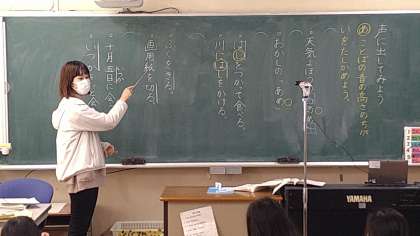 声に出してみよう
め ことばの音の高さのちが
いをたしかめよう。
天気よほうの あめ
おかしの あめ
はしをつかって食べる。
川にはしをかける。
ふくをきる。
画用紙を切る。
十月五日に会う
いつか 会
YAMAHA